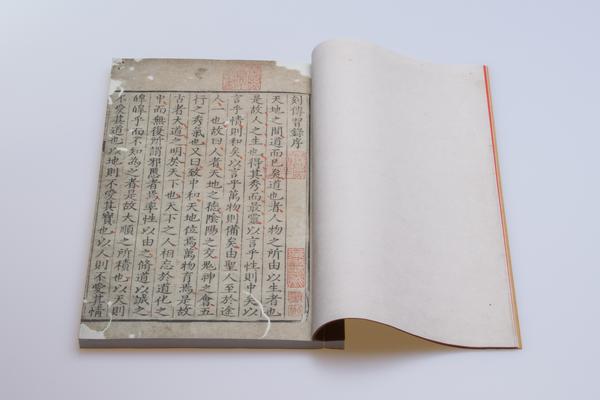 刻傳習錄序
天地之間道而已矣道也者人物之所由以生者也
是故人之生也得其秀而最靈以言乎性則中矣以
言乎情則和矣以言乎萬物則備矣由聖人至於途
人一也故曰人者天地之德陰陽之交鬼神之會五
行之秀氣也又曰致中和天地位焉萬物育焉是故
古者大道之明於天下也天下之人相忘於道化之
中而無復所謂邪慝者焉率性以由之脩道以誠之
皡皡乎而不知為之者是故大順之所積也以天則
不愛其道也以地則不愛其寶也以人則不愛其情